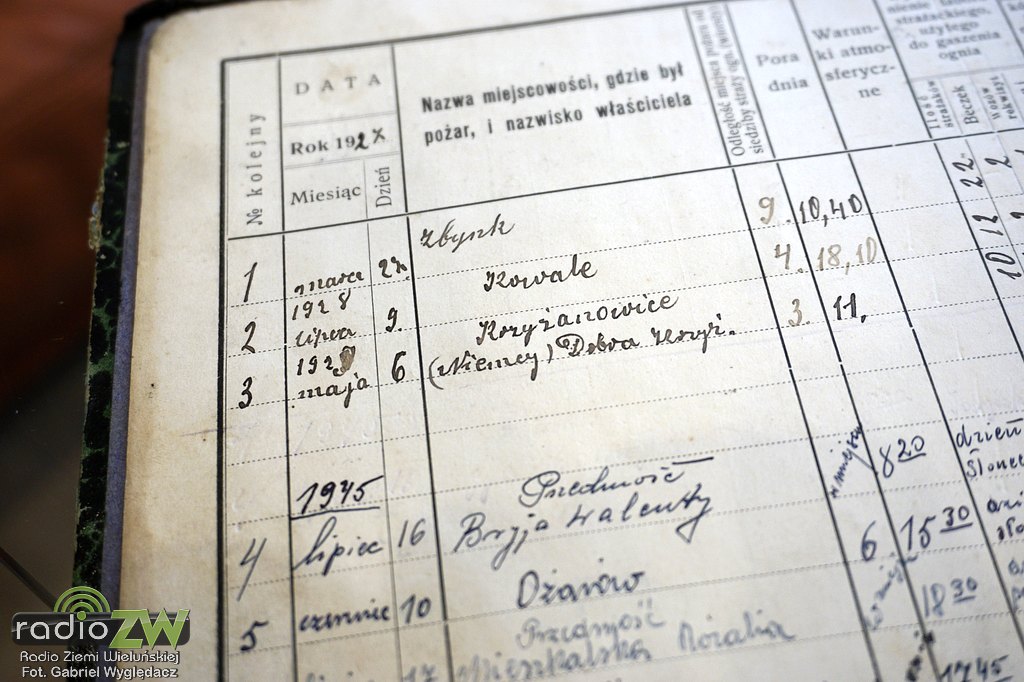 № kolejny
DATA
Rok 1927
Miesiąc
Dzień
Nazwa miejscowości, gdzie był
pożar, i nazwisko właściciela
Odległość miejsca pożaru od
siedziby straży ogn.
Pora
dnia
Warun-
ki atmo-
sferycz-
ne
strażackiego,
użytego
do gaszenia
ognia
Ilość
strażaków
Beczek
Wozów
rekwiz.
1 marca 27. 9. 10,40 22. 2
1928
2 lipca 9. Kowale 4. 18,10 10 12
1929
3 maja 6 Krzyżanowice 3. 11,
(Niemcy) Dobra Krzyż.
1945
4 lipiec 16 Przedmość
Bryja Walenty
w miejscu 8 20 dzień
5 czerwiec 10 Ożarów 6. 15 30
17 Przedmość 18 30
Mieszkalska Rozalia
17 45
radioZW
Radio Ziemi Wieluńskiej
Fot. Gabriel Wyględacz